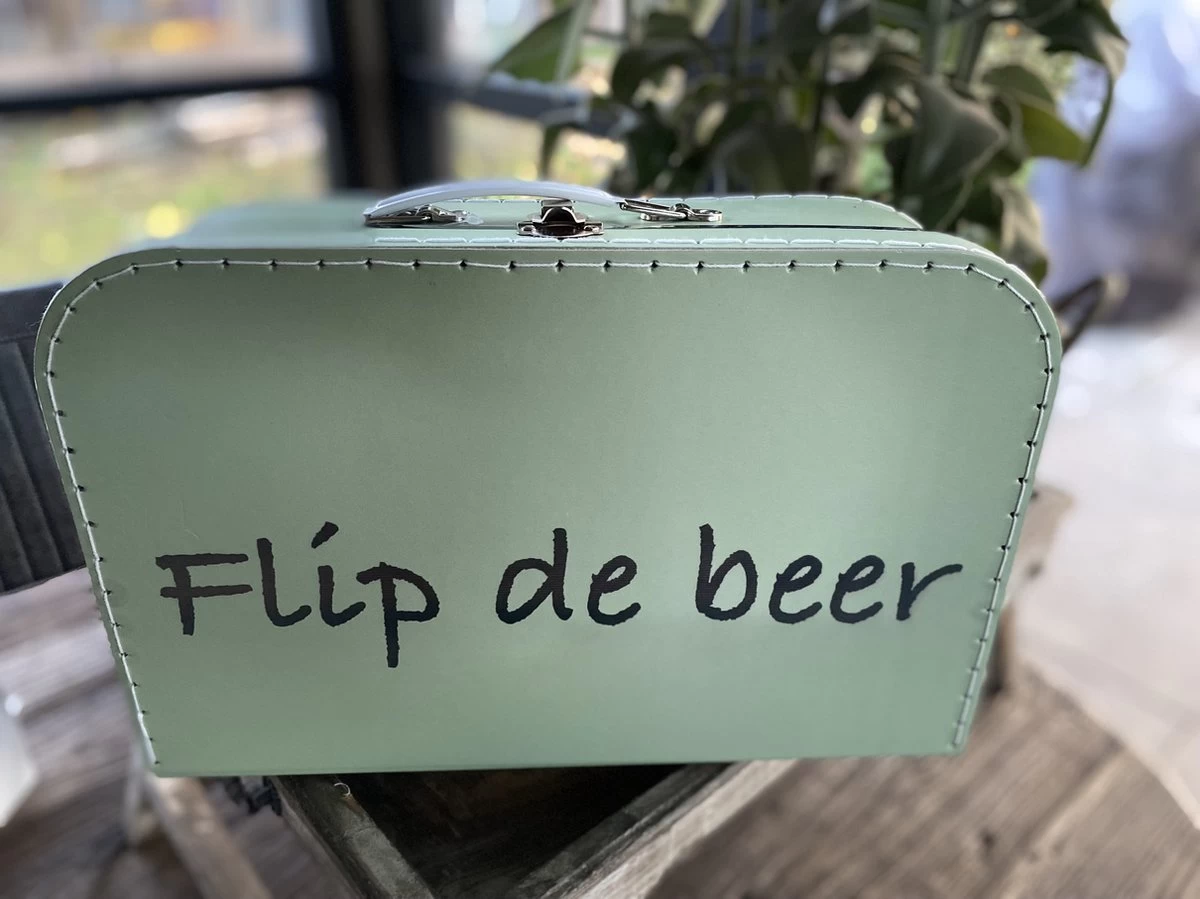 Flip de beer